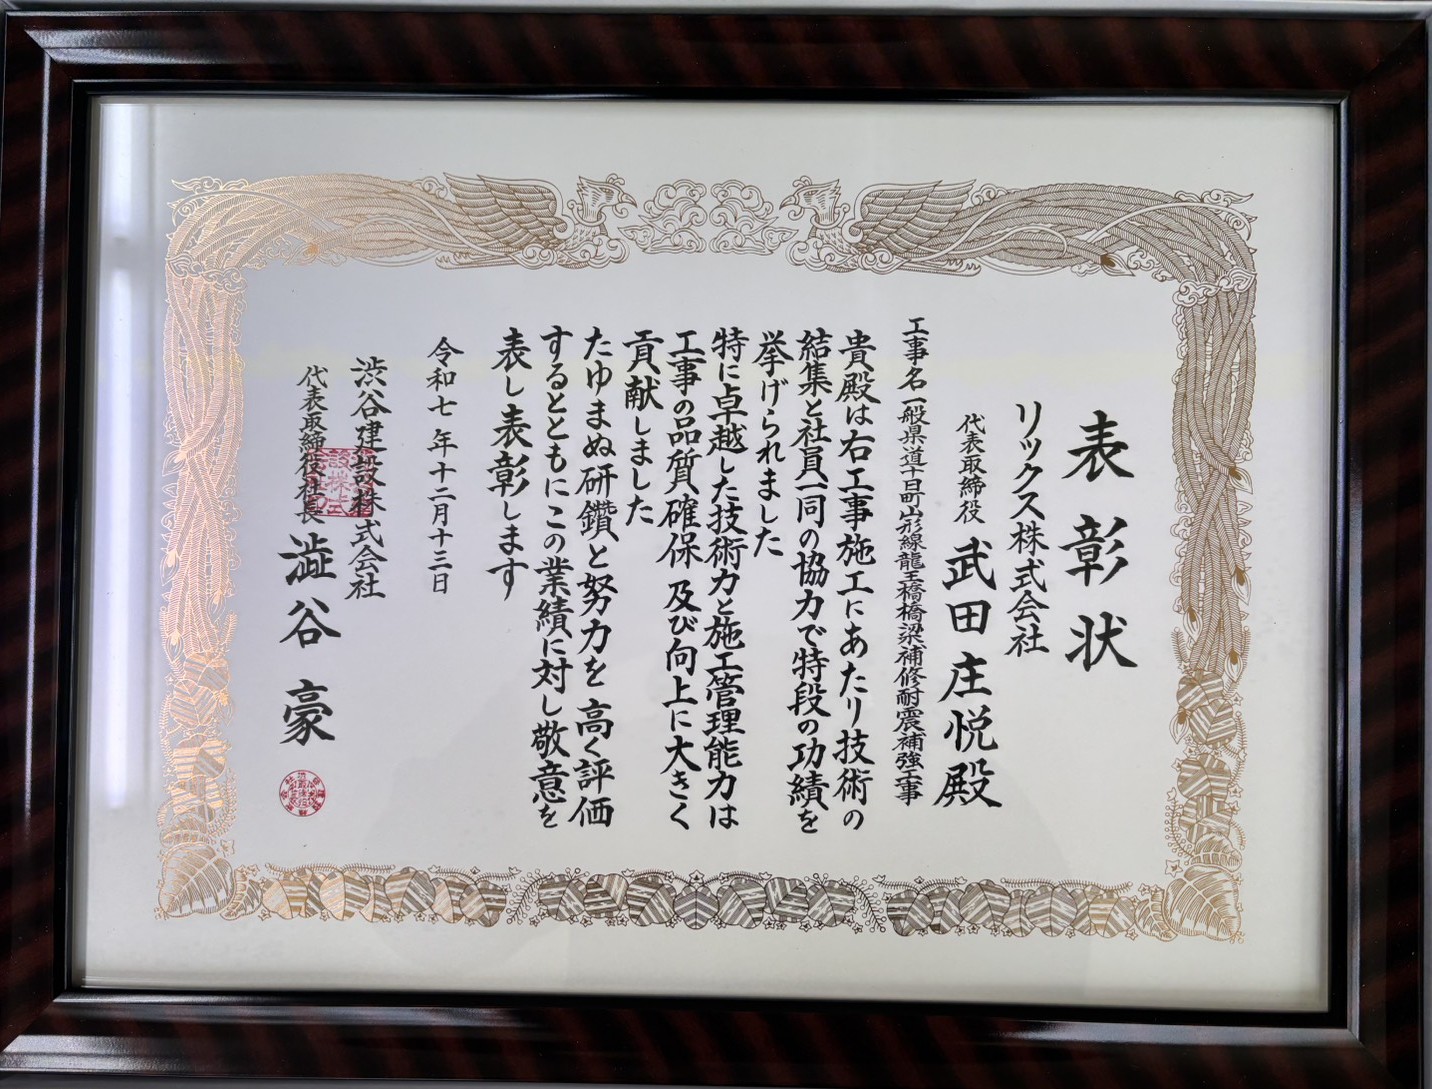 表彰状
リックス株式会社
代表取締役 武田庄悦殿
工事名 一般県道十日町山形線龍王橋橋梁補修耐震補強工事
貴殿は右工事施工にあたり技術の
結集と社員一同の協力で特段の功績を
挙げられました
特に卓越した技術力と施工管理能力は
工事の品質確保及び向上に大きく
貢献しました
たゆまぬ研鑽と努力を高く評価
するとともにこの業績に対し敬意を
表し表彰します
令和七年十二月十三日
渋谷建設株式会社
代表取締役社長 澁谷豪